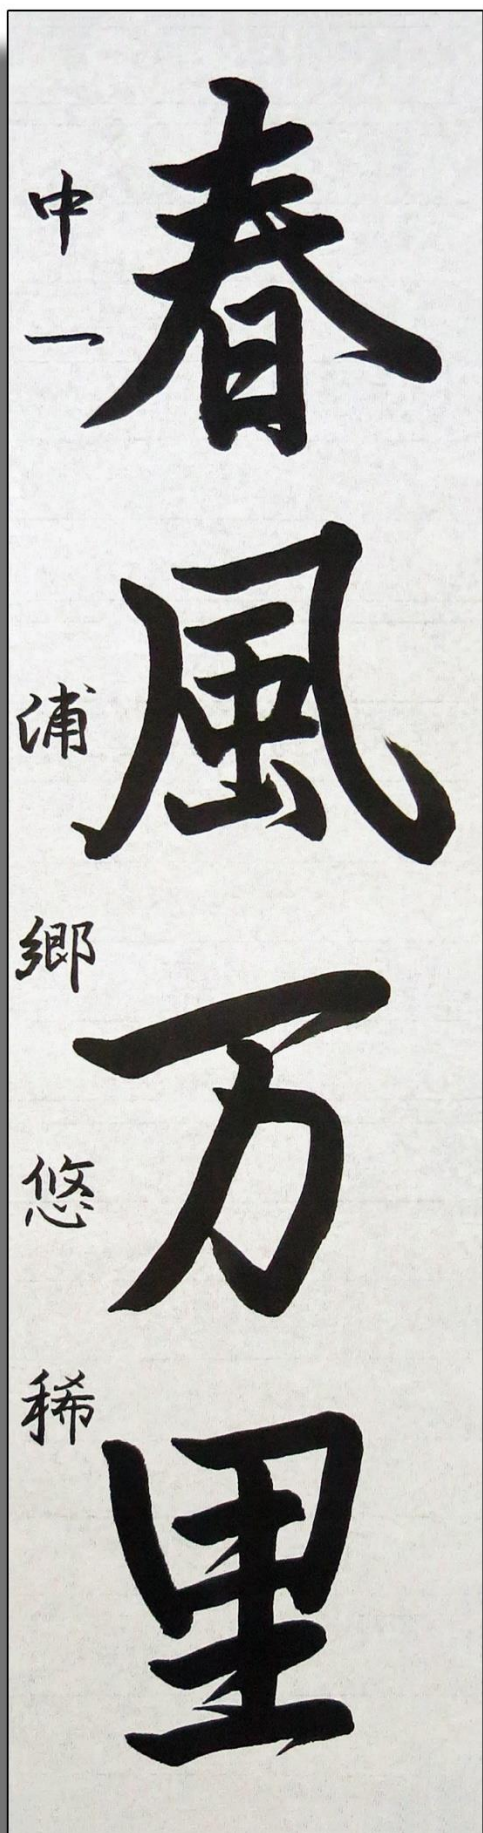 春風万里
中一 浦郷悠稀